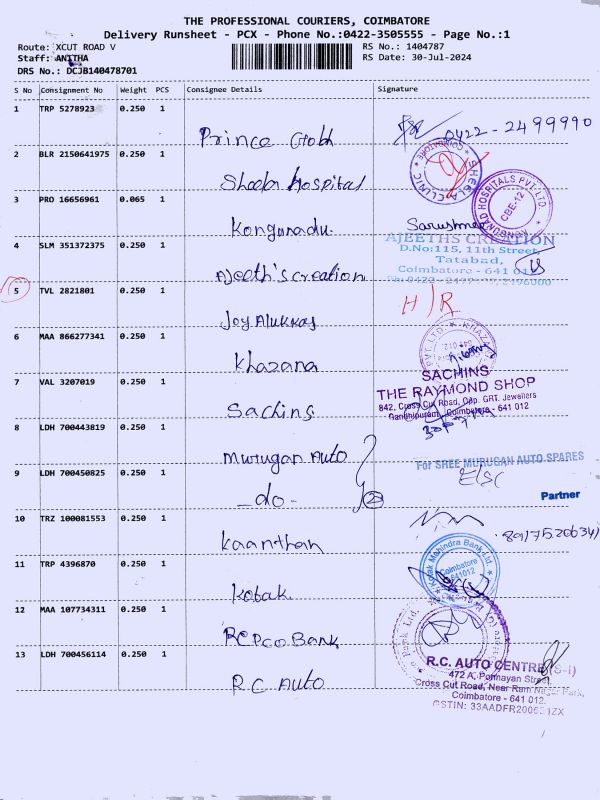 THE PROFESSIONAL COURIERS, COIMBATORE
Delivery Runsheet - PCX - Phone No.:0422-3505555 - Page No.:1
Route: XCUT ROAD V
RS No.: 1404787
Staff: ANITHA
RS Date: 30-Jul-2024
DRS No.: DCJB140478701
S No Consignment No Weight PCS Consignee Details Signature
1 TRP 5278923 0.250 1
Prince Gold 0422-2499990
2 BLR 2150641975 0.250 1
Sheela Hospital SHEELA CLINIC COIMBATORE
3 PRO 16656961 0.065 1
KONGUNAD HOSPITALS PVT. LTD. CBE-12
Kongunadu.
4 SLM 351372375 0.250 1
AJEETHS CREATION
D.No:115, 11th Street,
Tatabad,
Coimbatore - 641 012
Ajeeth's creation
5 TVL 2821801 0.250 1
H/R
Joy Alukkas
6 MAA 866277341 0.250 1
Khazana
7 VAL 3207019 0.250 1
SACHINS
THE RAYMOND SHOP
842, Cross Cut Road, Opp. GRT. Jewellers
Gandhipuram, Coimbatore - 641 012
Sachins
8 LDH 700443819 0.250 1
Murugan Auto
For SREE MURUGAN AUTO SPARES
9 LDH 700450825 0.250 1
Partner
-do- 2
10 TRZ 100081553 0.250 1
Kaanthan
11 TRP 4396870 0.250 1
Kotak Mahindra Bank Ltd. Coimbatore 641012
Kotak
12 MAA 107734311 0.250 1
Bank
13 LDH 700456114 0.250 1
R.C. AUTO CENTRE (S-I)
472 A, Ponnayan Street,
Cross Cut Road, Near Ram Nagar Park,
Coimbatore - 641 012.
R.C Auto